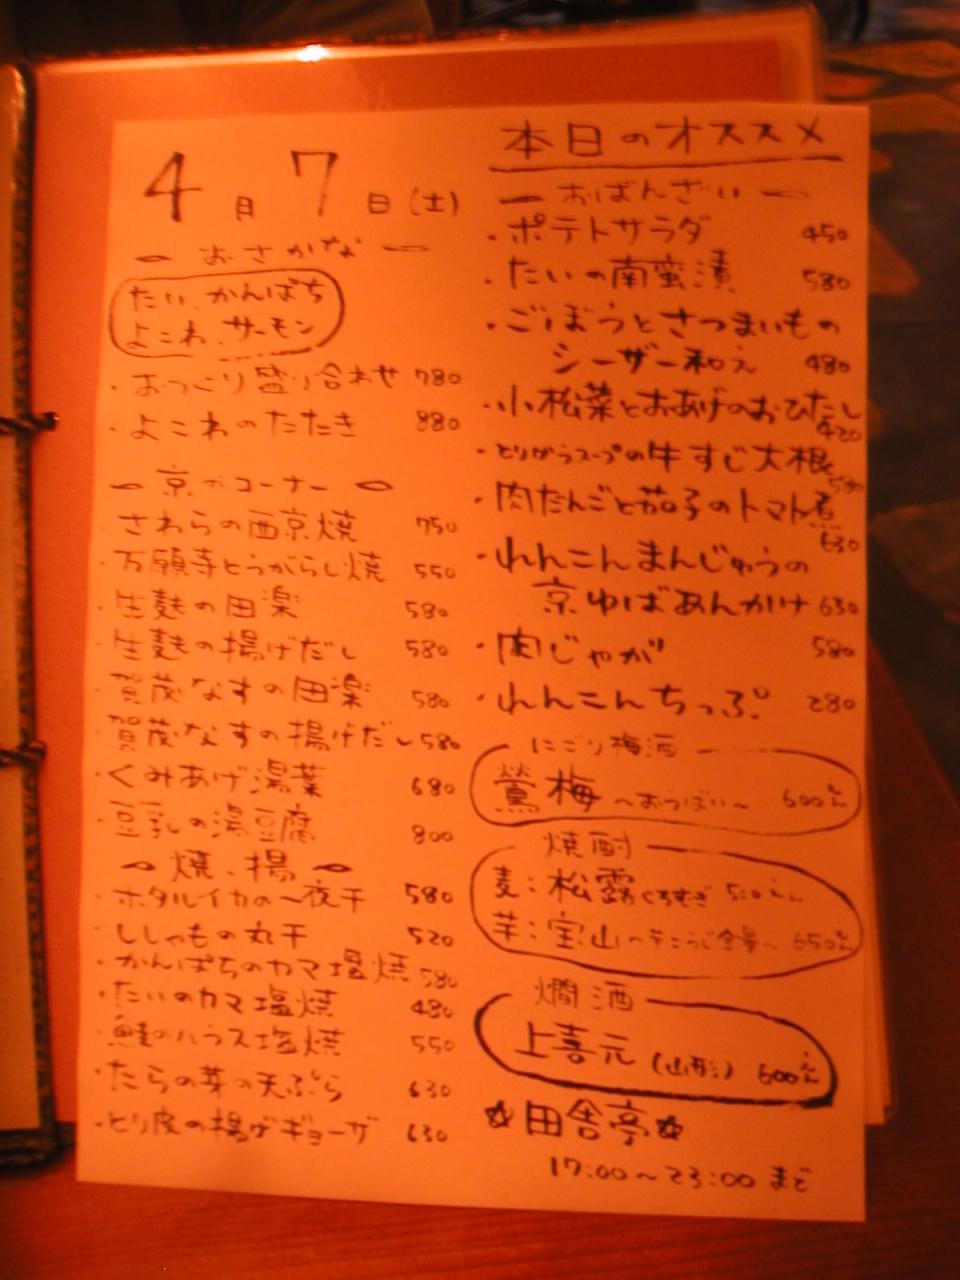 4月7日(土)
ー おさかな ー
たい、かんぱち
よこわ、サーモン
・おつくり盛り合わせ 780
・よこわのたたき 880
ー 京のコーナー ー
・さわらの西京焼 750
・万願寺とうがらし焼 550
・生麩の田楽 580
・生麩の揚げだし 580
・賀茂なすの田楽 580
・賀茂なすの揚げだし 580
・くみあげ湯葉 680
・豆乳の湯豆腐 800
ー 焼、揚 ー
・ホタルイカの一夜干 580
・ししゃもの丸干 520
・かんぱちのカマ塩焼 580
・たいのカマ塩焼 480
・鮭のハラス塩焼 550
・たらの芽の天ぷら 630
・とり皮の揚げギョーザ 630
本日のオススメ
ー おばんざい ー
・ポテトサラダ 450
・たいの南蛮漬 580
・ごぼうとさつまいもの
シーザー和え 480
・小松菜とおあげのおひたし
420
・とりがらスープの牛すじ大根
580
・肉だんごと茄子のトマト煮
630
・れんこんまんじゅうの
京ゆばあんかけ 630
・肉じゃが 580
・れんこんちっぷ 280
にごり梅酒
鶯梅 〜おうばい〜 600えん
焼酎
麦:松露くろむぎ 500えん
芋:宝山 650えん
燗酒
上喜元 (山形) 600えん
☆田舎亭☆
17:00〜23:00まで